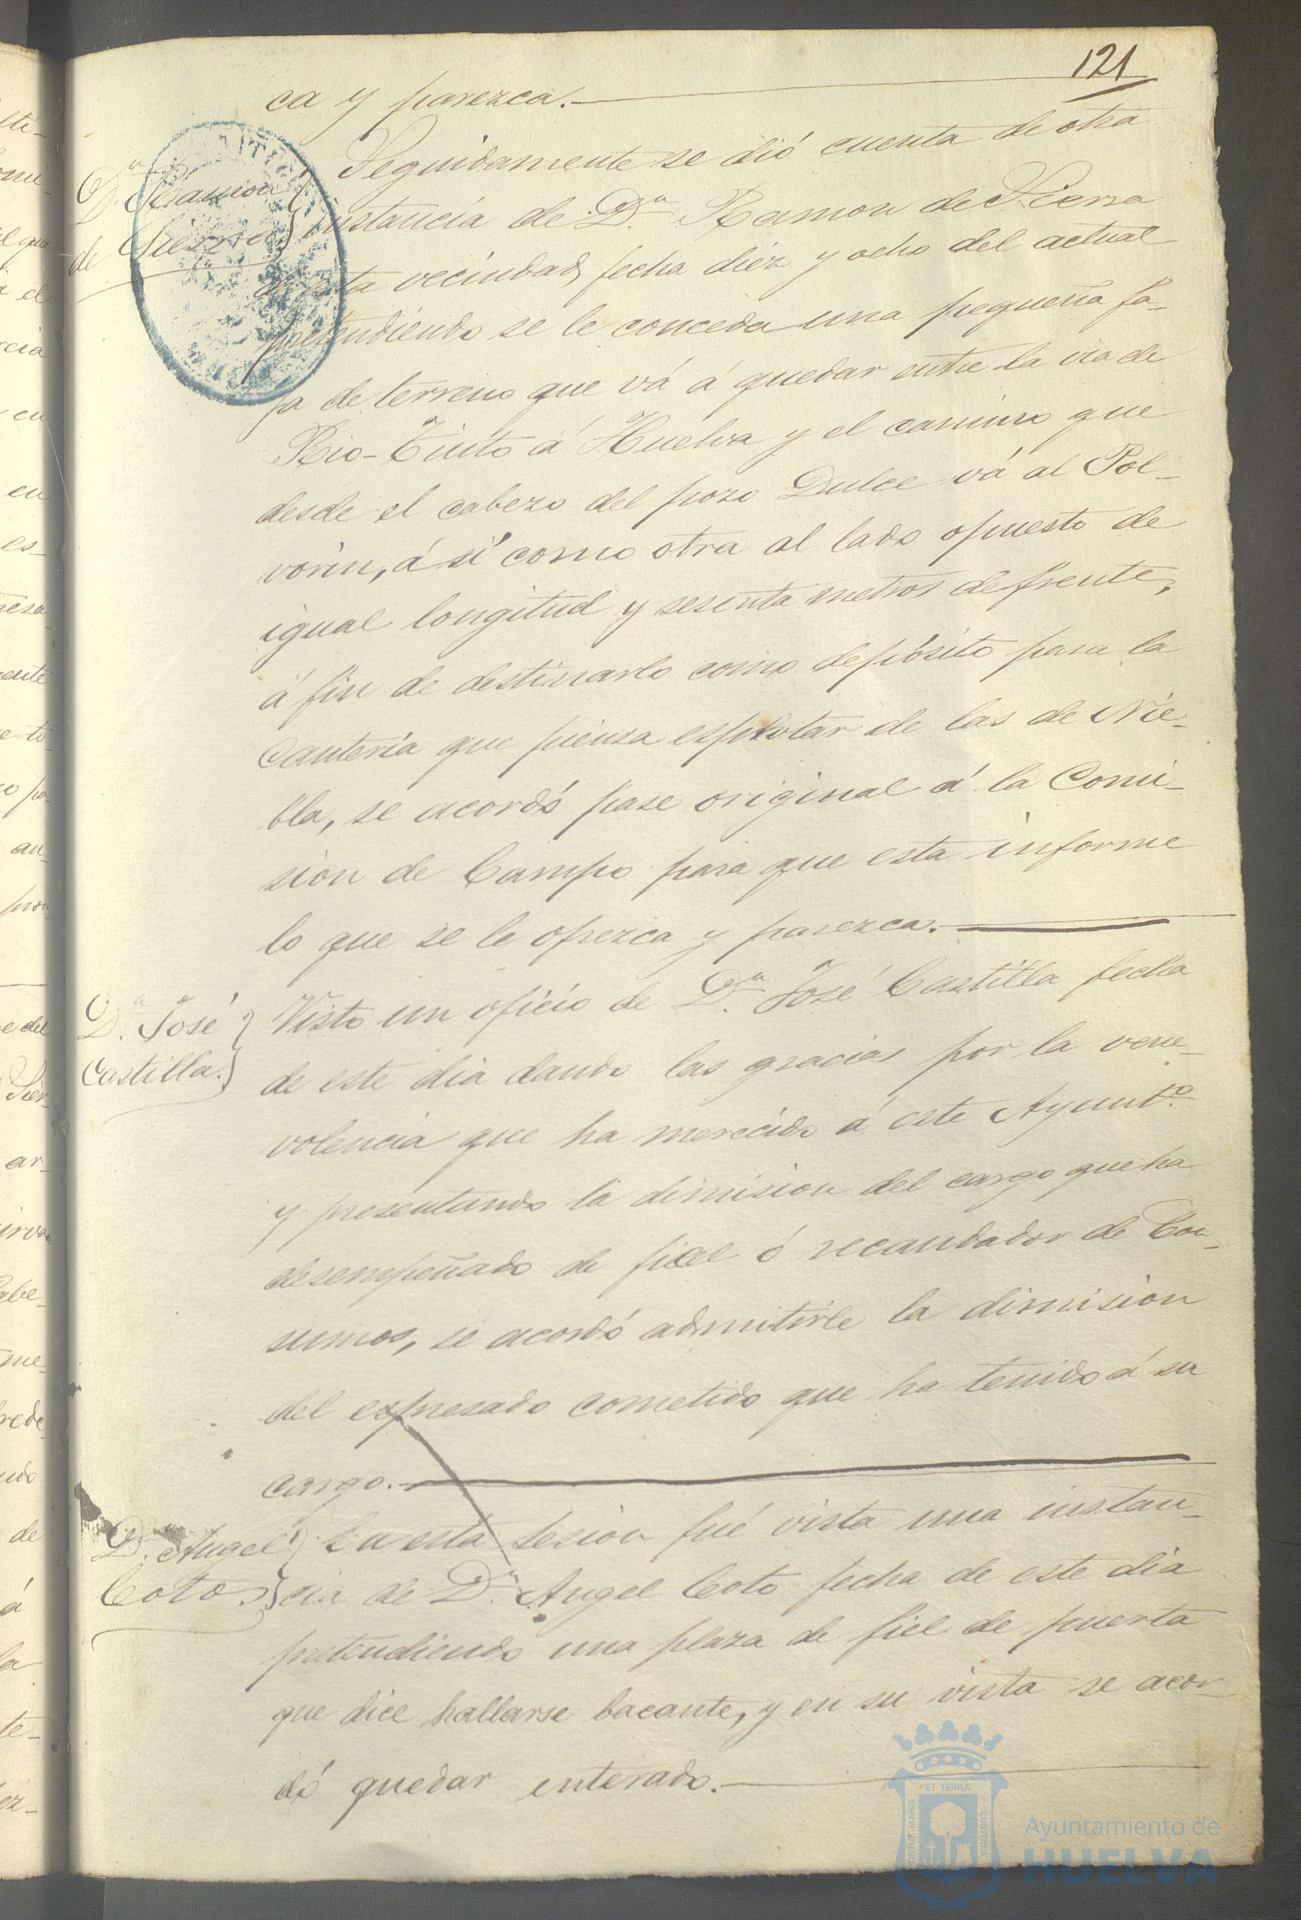 121
ca y parezca.
Dn. Ramon
de Sierra
Seguidamente se dió cuenta de otra
instancia de Dn. Ramon de Sierra
de esta vecindad, fecha diez y ocho del actual
pretendiendo se le conceda una pequeña fa-
ja de terreno que vá á quedar entre la via de
Rio-Tinto á Huelva y el camino que
desde el cabezo del pozo Dulce vá al Pol-
vorin, á sí como otra al lado opuesto de
igual longitud y sesenta metros de frente,
á fin de destinarlo como depósito para la
Cantería que piensa esplotar de las de Nie-
bla, se acordó pase original á la Comi-
sion de Campo para que esta informe
lo que se le ofrezca y parezca.
Dn. José
Castilla.
Visto un oficio de Dn. José Castilla fecha
de este dia dando las gracias por la vene-
volencia que ha merecido á este Ayuntº.
y presentando la dimision del cargo que ha
desempeñado de fiel ó recaudador de Con-
sumos, se acordó admitirle la dimision
del espresado cometido que ha tenido á su
cargo.
D. Angel
Coto
En esta sesion fué vista una instan-
cia de Dn. Angel Coto fecha de este dia
pretendiendo una plaza de fiel de puerta
que dice hallarse bacante, y en su vista se acor-
dó quedar enterado.
ET TERRA
Ayuntamiento de
HUELVA